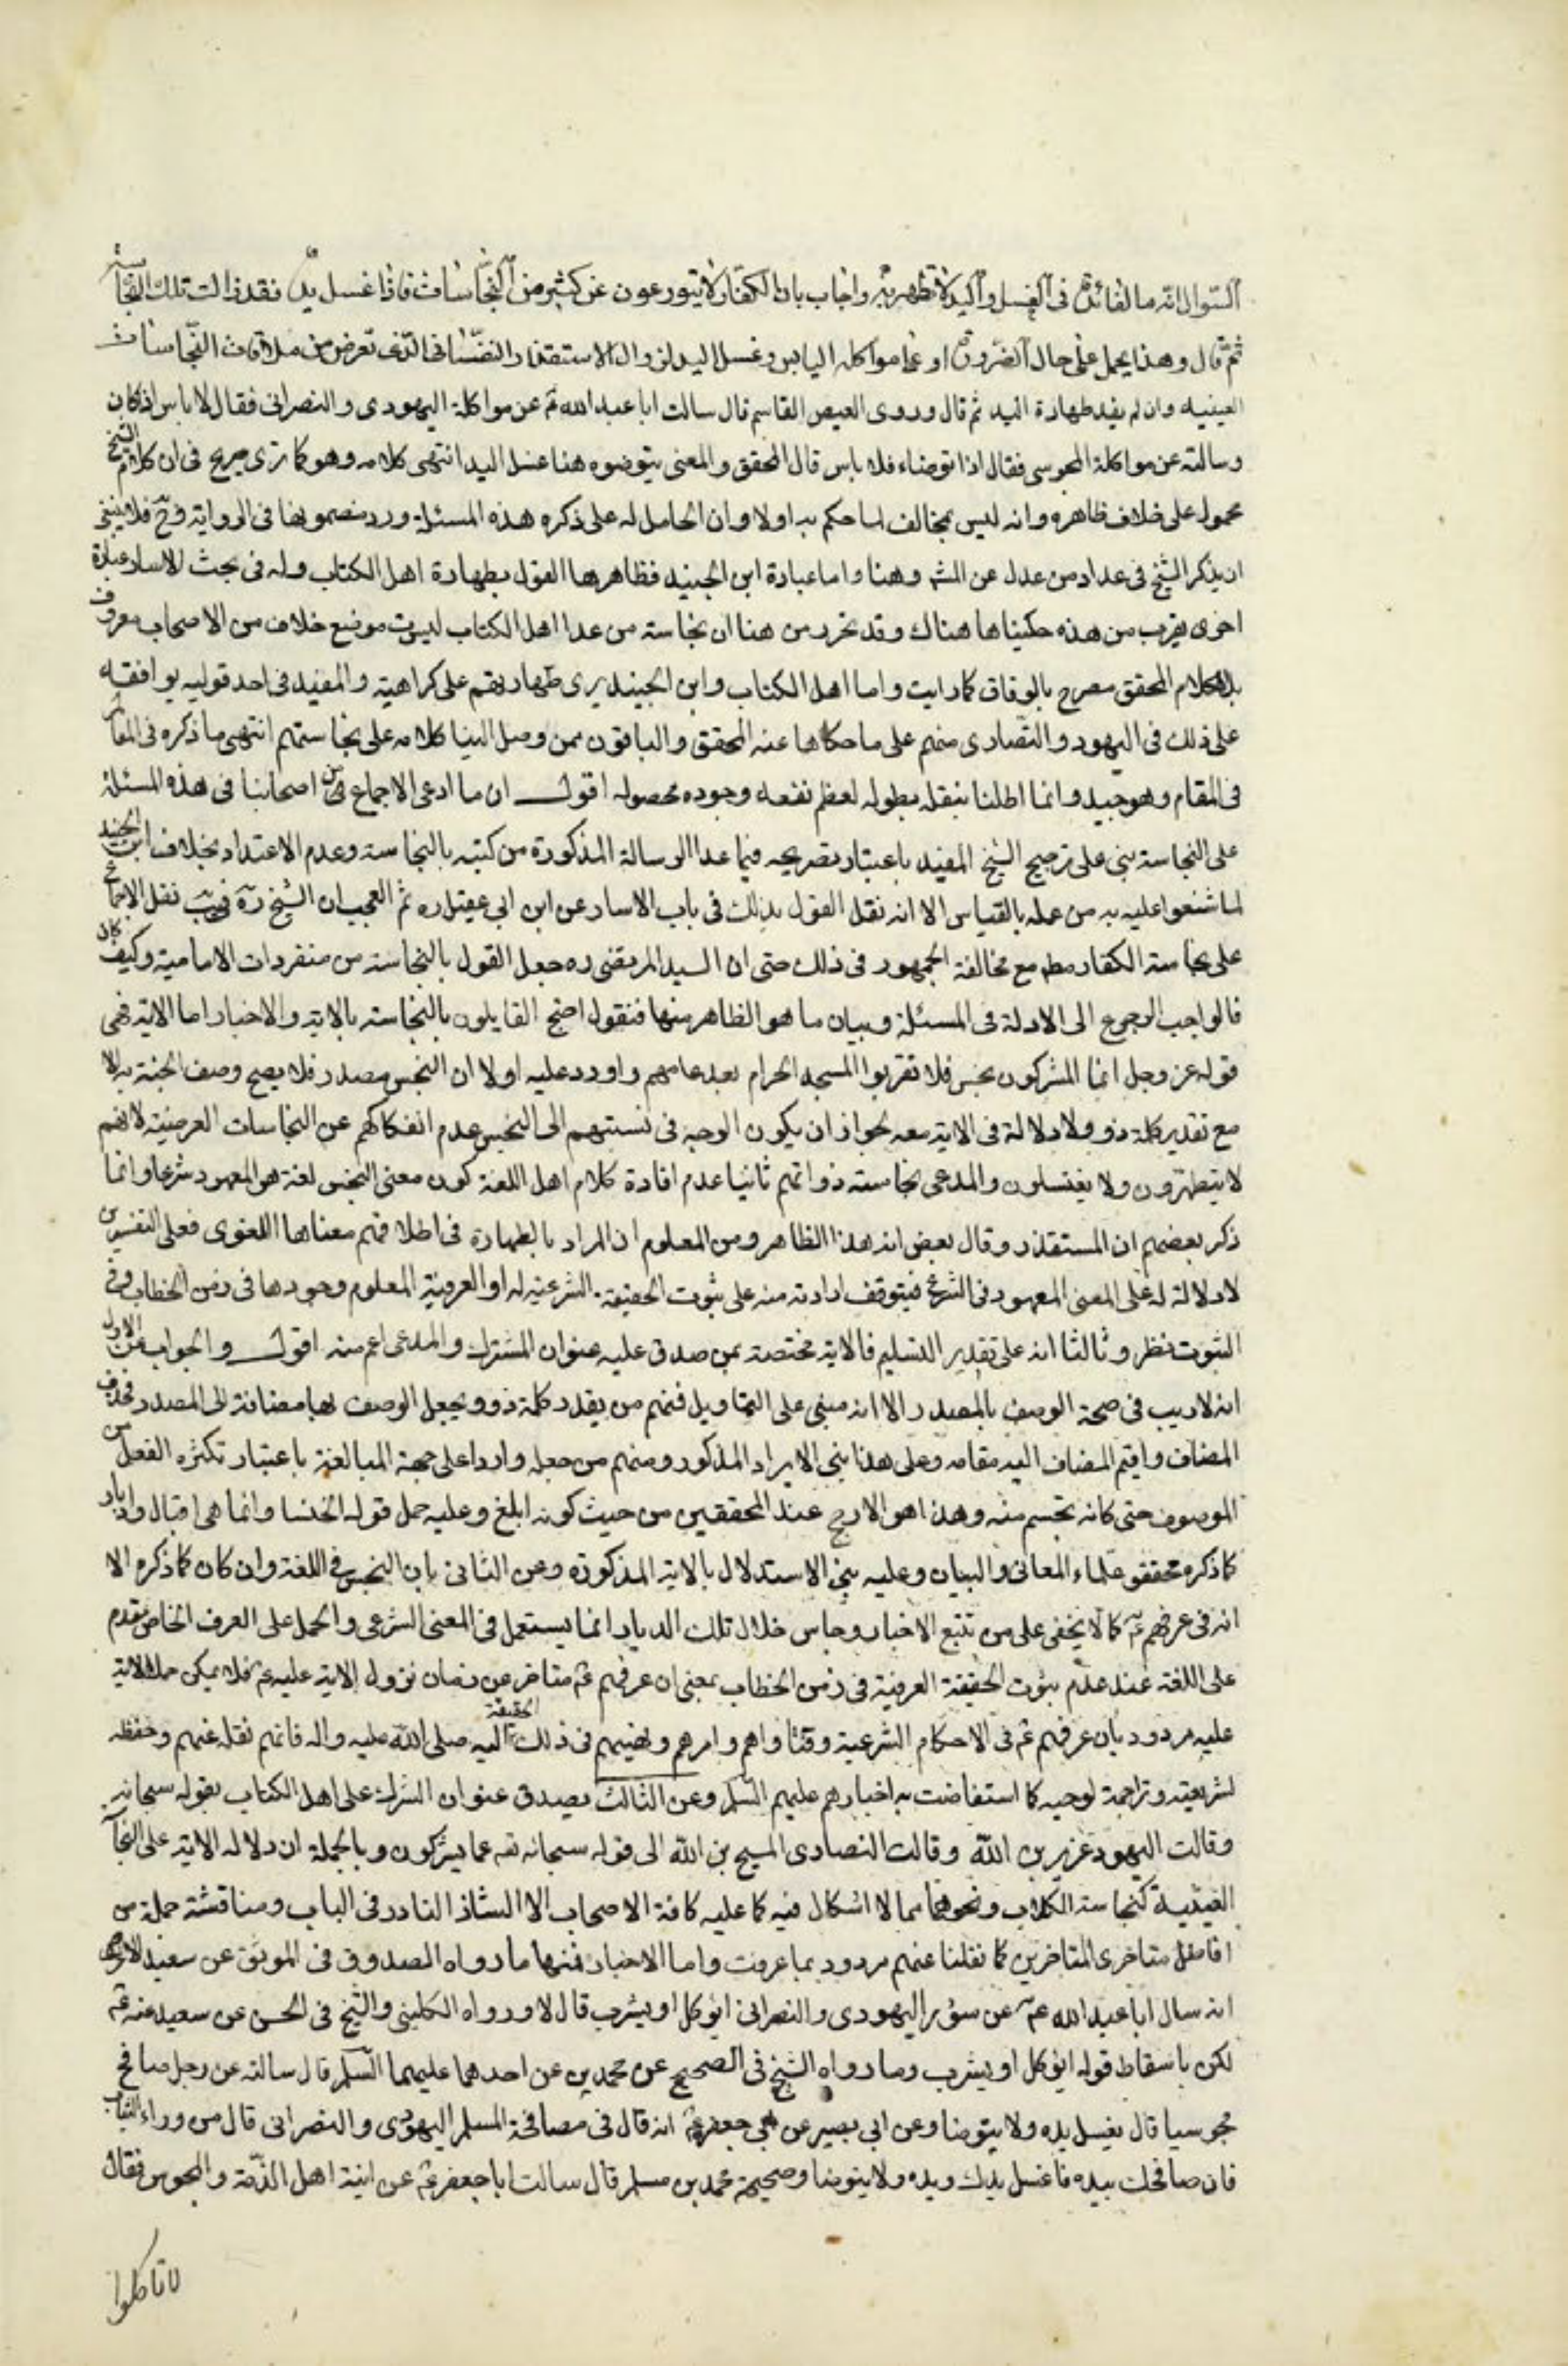 السؤال انه ما الفائدة فى الغسل واليد لا تطهر به واجاب بان الكفار لا يتورعون عن كثير من النجاسات فاذا غسل يده فقد زالت تلك النجاسة
ثم قال وهذا يحمل على حال الضرورة او على مواكله اليابس وغسل اليد لزوال الاستقذار النفسانى الذى تعرض من ملاقات النجاسات
العينيه وان لم يفد طهارة اليد ثم قال وروى العيص القاسم قال سالت ابا عبد الله عم عن مواكلة اليهودى والنصرانى فقال لا باس اذا كان
وسالته عن مواكلة المجوسى فقال اذا توضاء فلا باس قال المحقق والمعنى بتوضوه هنا غسل اليد انتهى كلامه وهو كما ترى صريح فى ان كلام الشيخ
محمول على خلاف ظاهره وانه ليس بمخالف لما حكم به اولا وان الحامل له على ذكره هذه المسئلة ورد مضمونها فى الرواية وح فلا ينبغى
ان يذكر الشيخ فى عداد من عدل عن المشه وهنا واما عبادة ابن الجنيد فظاهرها القول بطهارة اهل الكتاب وله فى بحث الاسار عبارة
اخرى يقرب من هذه حكيناها هناك وقد تحرر من هنا ان نجاسة من عدا اهل الكتاب ليست موضع خلاف من الاصحاب معروف
بل كلام المحقق مصرح بالوفاق كما رايت واما اهل الكتاب وابن الجنيد يرى طهارتهم على كراهية والمفيد فى احد قوليه يوافقه
على ذلك فى اليهود والنصارى منهم على ما حكاها عنه المحقق والباقون ممن وصل الينا كلامه على نجاستهم انتهى ما ذكره فى المعالم
فى المقام وهو جيد وانما اطلنا بنقله بطوله لعظم نفعه وجوده محصوله اقول ان ما ادعى الاجماع من اصحابنا فى هذه المسئلة
على النجاسة بنى على ترجيح الشيخ المفيد باعتبار تصريحه فيما عدا الرسالة المذكورة من كتبه بالنجاسة وعدم الاعتداد بخلاف ابن الجنيد
لما شنعوا عليه به من عمله بالقياس الا انه نقل القول بذلك فى باب الاسار عن ابن ابى عقيل ره ثم العجب ان الشيخ ره فى يب نقل الاجماع
على نجاسة الكفار مطم مع مخالفة الجمهور فى ذلك حتى ان السيد المرتضى ره جعل القول بالنجاسة من منفردات الامامية وكيف كان
فالواجب الرجوع الى الادلة فى المسئلة وبيان ما هو الظاهر منها فنقول احتج القايلون بالنجاسة بالاية والاخبار اما الاية فهى
قوله عز وجل انما المشركون نجس فلا تقربوا المسجد الحرام بعد عامهم واورد عليه اولا ان النجس مصدر فلا يصح وصف الجثة به الا
مع تقدير كلمة ذو ولا دلالة فى الاية معه لجواز ان يكون الوجه فى نسبتهم الى النجس عدم انفكاكهم عن النجاسات العرضية لانهم
لا يتطهرون ولا يغتسلون والمدعى نجاسة ذواتهم ثانيا عدم افادة كلام اهل اللغة كون معنى النجس لغة هو المعهود شرعا وانما
ذكر بعضهم ان المستقذر وقال بعض انه هذا الظاهر ومن المعلوم ان المراد بالطهارة فى اطلاقهم معناها اللغوى فعلى التفسيرين
لا دلالة له على المعنى المعهود فى الشرع فيتوقف ارادته منه على ثبوت الحقيقة الشرعية له او العرفية المعلوم وجودها فى زمن الخطاب وفى
الثبوت نظر وثالثا انه على تقدير التسليم فالاية مختصة بمن صدق عليه عنوان المشرك والمدعى اعم منه اقول والجواب عن الاول
انه لا ريب فى صحة الوصف بالمصدر الا انه مبنى على التاويل فمنهم من يقدر كلمة ذو ويجعل الوصف بها مضافة الى المصدر فحذف
المضاف واقيم المضاف اليه مقامه وعلى هذا بنى الايراد المذكور ومنهم من جعله واردا على جهة المبالغة باعتبار تكثره الفعل من
الموصوف حتى كانه تجسم منه وهذا هو الارجح عند المحققين من حيث كونه ابلغ وعليه حمل قوله الخنسا وانما هى اقبال وادبار
كما ذكره محققو علماء المعانى والبيان وعليه بنى الاستدلال بالاية المذكورة وعن الثانى بان النجس فى اللغة وان كان كما ذكره الا
انه فى عرفهم عم كما لا يخفى على من تتبع الاخبار وجاس خلال تلك الديار انما يستعمل فى المعنى الشرعى والحمل على العرف الخاص مقدم
على اللغة عند عدم ثبوت الحقيقة العرفية فى زمن الخطاب بمعنى ان عرفهم عم متاخر عن زمان نزول الاية عليه عم فلا يمكن حمل الاية
عليه مردود بان عرفهم عم فى الاحكام الشرعية وفتاواهم وامرهم ونهيهم فى ذلك الحقيقة اليه صلى الله عليه واله فانهم نقله عنهم وحفظه
لشريعته وتراجمة لوحيه كما استفاضت به اخبارهم عليهم السلم وعن الثالث بصدق عنوان الشرك على اهل الكتاب بقوله سبحانه
وقالت اليهود عزير بن الله وقالت النصارى المسيح بن الله الى قوله سبحانه تعه عما يشركون وبالجملة ان دلاله الاية على النجاسة
العينية كنجاسة الكلاب ونحوهما مما لا اشكال فيه كما عليه كافة الاصحاب الا الشاذ النادر فى الباب ومناقشة جملة من
افاضل متاخرى المتاخرين كما نقلنا عنهم مردود بما عرفت واما الاخبار فمنها ما رواه الصدوق فى الموثق عن سعيد الاعرج
انه سال ابا عبد الله عم عن سؤر اليهودى والنصرانى ايؤكل او يشرب قال لا ورواه الكلينى والشيخ فى الحسن عن سعيد عنه عم
لكن باسقاط قوله ايؤكل او يشرب وما رواه الشيخ فى الصحيح عن محمد بن عن احدهما عليهما السلم قال سالته عن رجل صافح
مجوسيا قال يغسل يده ولا يتوضا وعن ابى بصير عن ابى جعفر عم انه قال فى مصافحة المسلم اليهودى والنصرانى قال من وراء الثياب
فان صافحك بيده فاغسل يدك ويده ولا يتوضا وصحيحة محمد بن مسلم قال سالت ابا جعفر عم عن انية اهل الذمة والمجوس فقال
لا تاكلوا